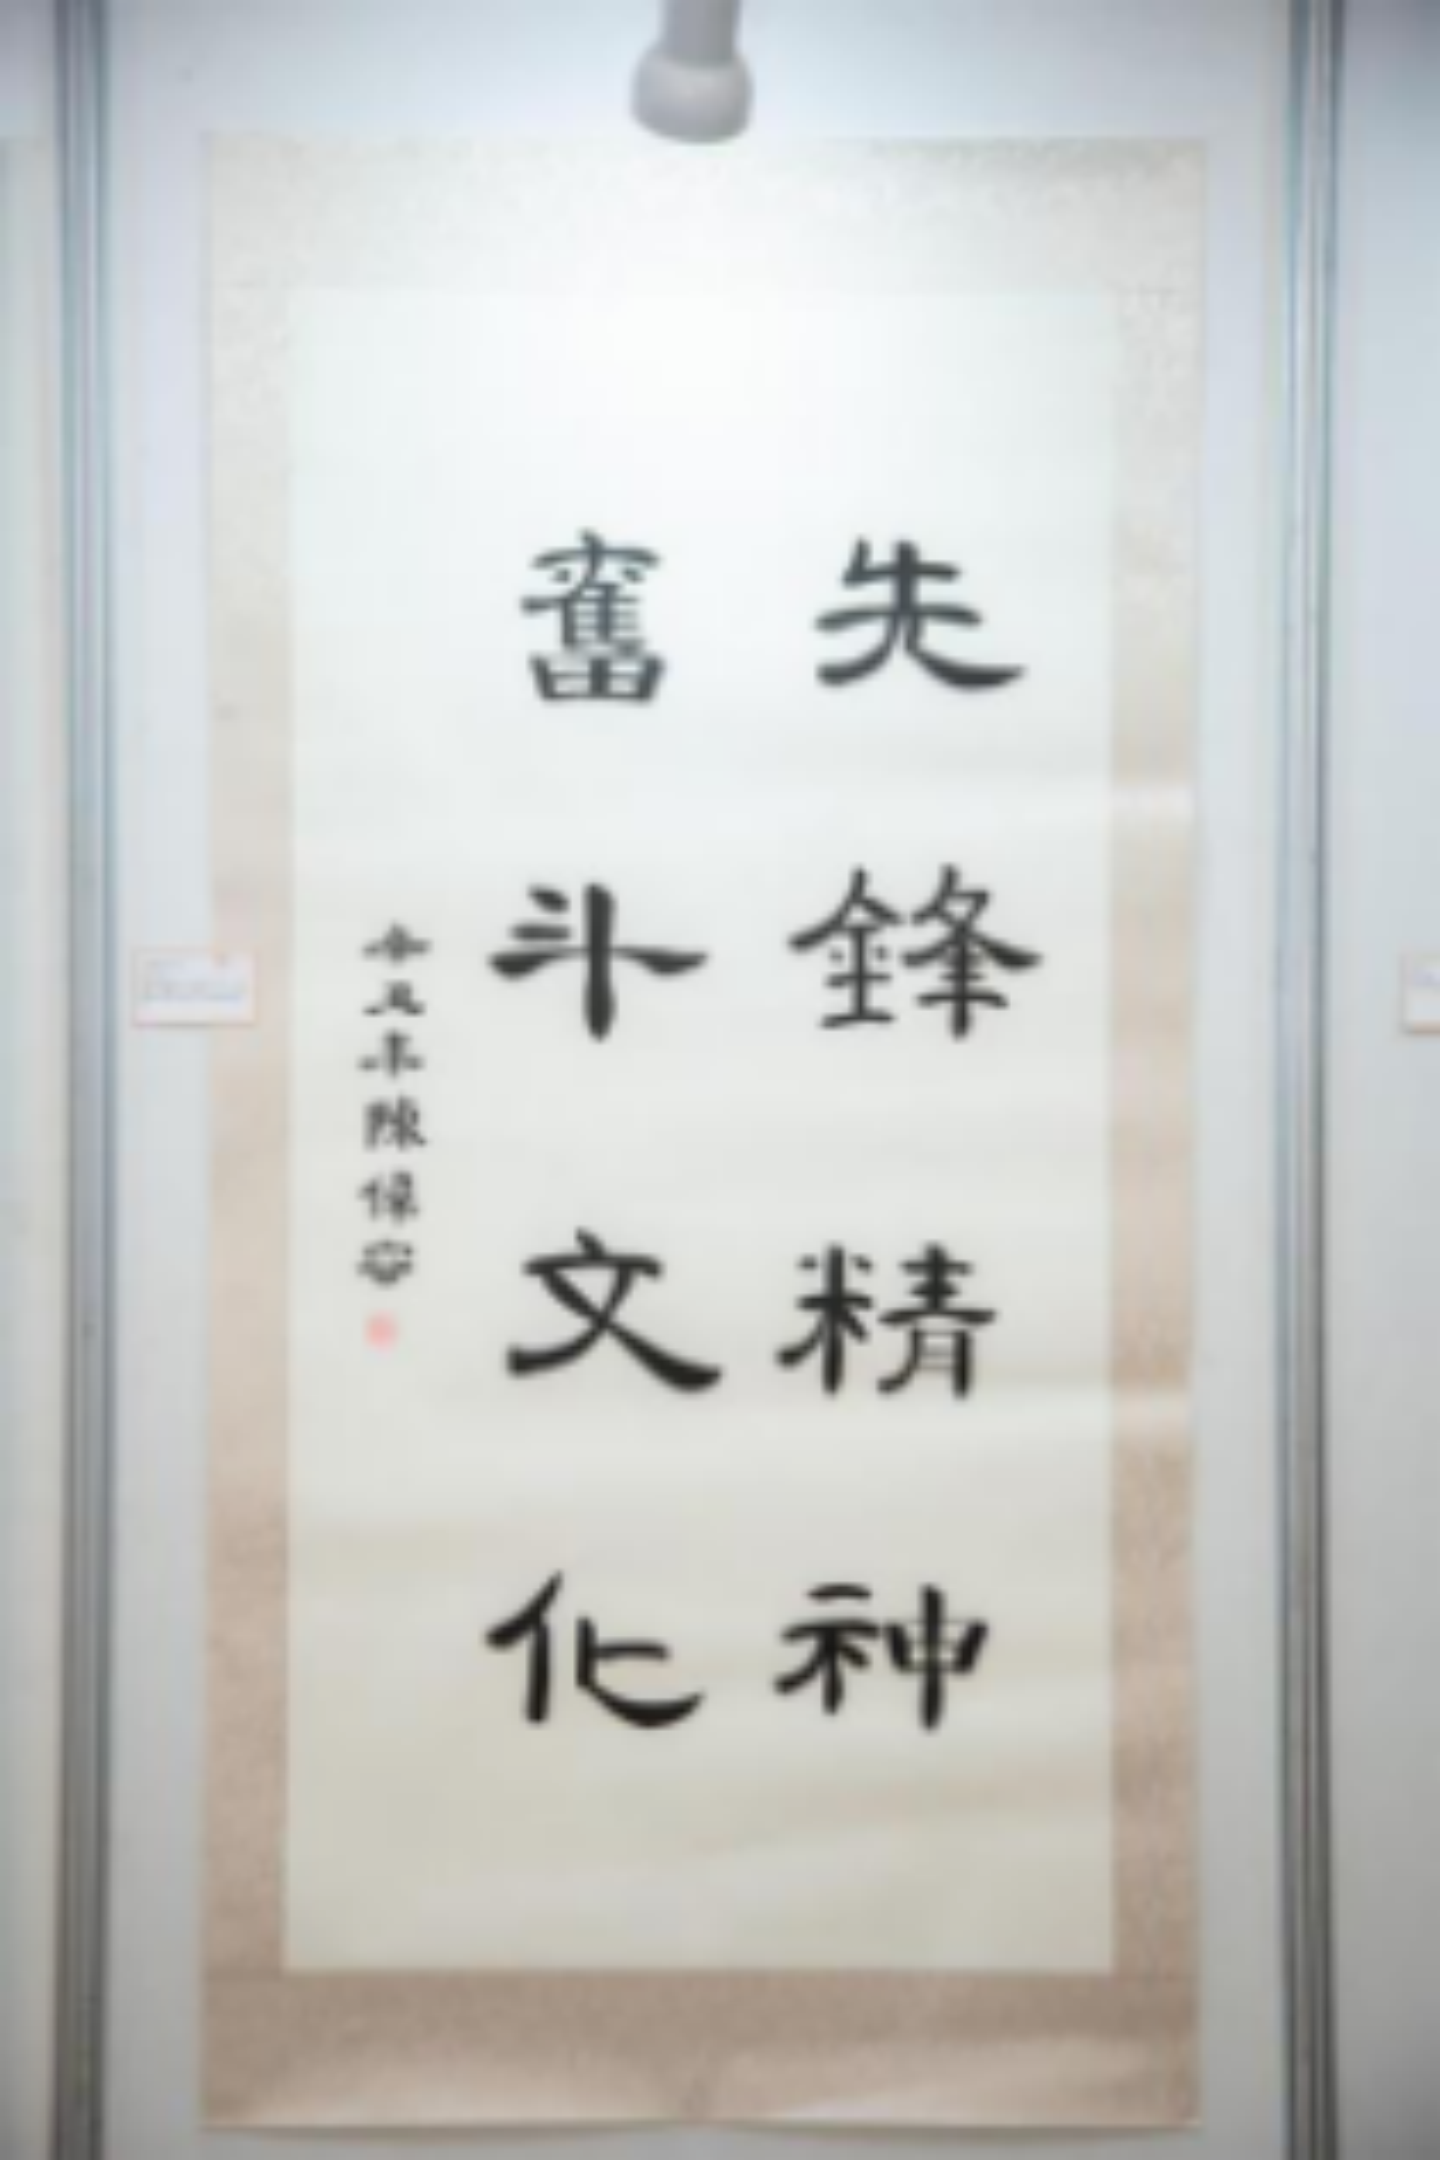 先鋒精神
奮斗文化
辛丑年陳